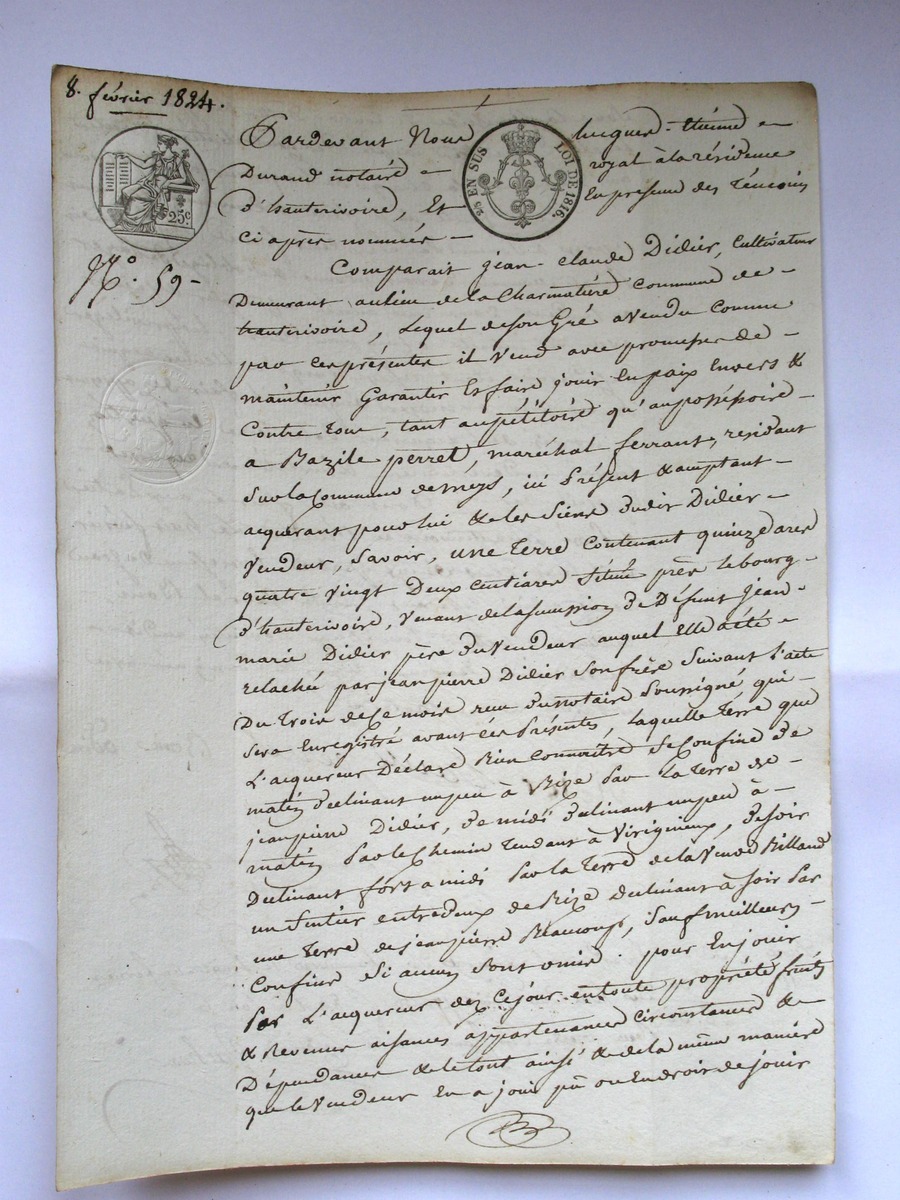 8. février 1824.
Pardevant Nous Jacques-Etienne
Durand notaire royal à la résidence
d'hauterivoire, Et En présence des Témoins
ci après nommés
25 EN SUS LOI DE 1816.
25c
N.° 59
Comparait jean-claude Didier, Cultivateur
Demeurant au lieu de la Charmatière commune de
hauterivoire, Lequel de son Gré a Vendu Comme
par ces présentes il Vend avec promesse de
maintenir Garantir Et faire jouir En paix Envers &
Contre Tous, tant au pétitoire qu'au possessoire
a Bazile perret, maréchal ferrant, residant
Sur la Commune de meys, ici Présent & acceptant
acquerant pour lui & les Siens dudit Didier
Vendeur, Savoir, une Terre Contenant quinze ares
quatre Vingt Deux Centiares Située près le bourg
d'hauterivoire, Venant de la succession de Défunt Jean
marie Didier père du Vendeur auquel Elle a été
relachée par jean pierre Didier Son frère Suivant l'acte
Du Trois de Ce mois reçu du notaire Soussigné qui
Sera Enregistré avant ces Présentes, Laquelle Terre que
L'acquereur Déclare Bien Connoitre Se Confine de
matin declinant un peu à Bize Par La Terre de
jean pierre Didier, de midi declinant un peu à
matin Par le Chemin Tendant à Virigneux, de soir
Declinant fort a midi Par la Terre de la Veuve Rilland
un Sentier entredeux de Bize Declinant à Soir Par
une Terre de jean pierre Beaucoup, Sauf meilleurs
Confins Si aucun Sont omis. pour En jouir
Par L'acquereur dez Ce jour en toute propriété fruits
& Revenus aisances appartenances Circonstances &
Dépendances & le tout ainsi & de la même manière
que le Vendeur En a joui pû ou En droit de jouir